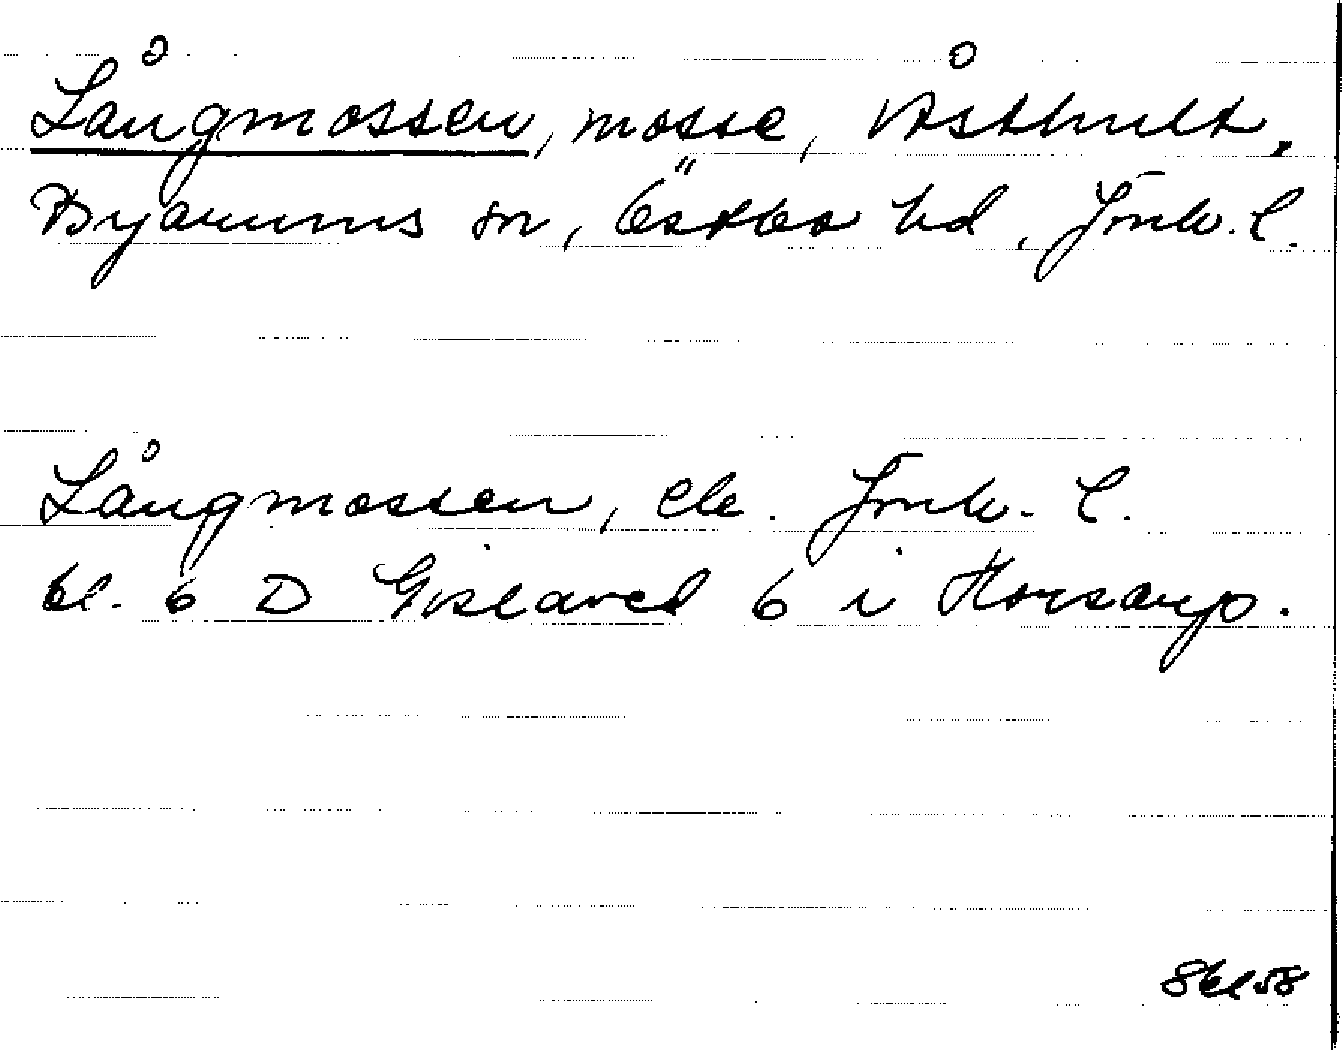 Långmossen, mosse, Våsthult,
Byarums sn, Östbo hd, Jönk. l.
Långmossen, ek. Jönk. l.
bl. 6 D Gislaved 6 i Horsarp.
8bl58